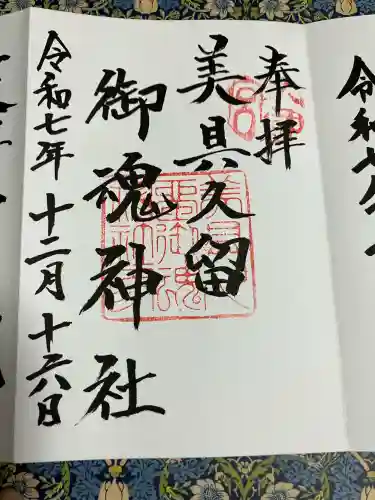 奉拝
美具久留
御魂神社
令和七年十二月十六日
令和七